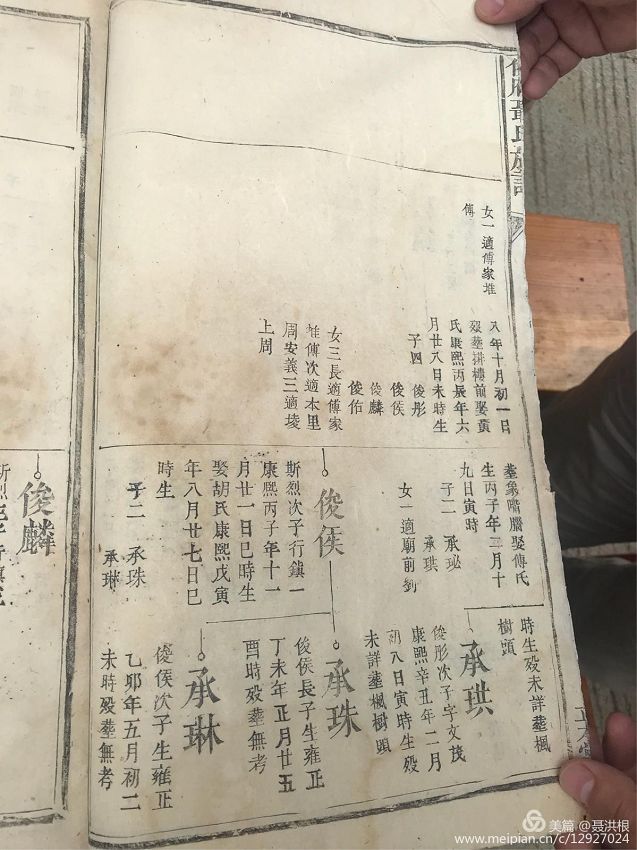 聶氏族
女一適傅家堆
傅
八年十月初一日
歿葬排樓前娶黃
氏康熙丙辰年六
月廿八日未時生
子四 俊彤
俊侯
俊麟
俊佑
女三長適傅家
堆傅次適木里
周安義三適堎
上周
葬象嘴腦娶傅氏
生丙子年三月十
九日寅時
子二 承珌
承珙
女一適廟前劉
俊侯
斯烈次子行鎮一
康熙丙子年十一
月廿一日巳時生
娶胡氏康熙戊寅
年八月廿七日巳
時生
子二 承珠
承琳
時生歿未詳葬楓
樹頭
承珙
俊彤次子字文茂
康熙辛丑年二月
初八日寅時生歿
未詳葬楓樹頭
承珠
俊侯長子生雍正
丁未年正月廿五
酉時歿葬無考
承琳
俊侯次子生雍正
乙卯年五月初二
未時歿葬無考
俊麟
斯烈三子行鎮三
美篇 @聂洪根
www.meipian.cn/c/12927024